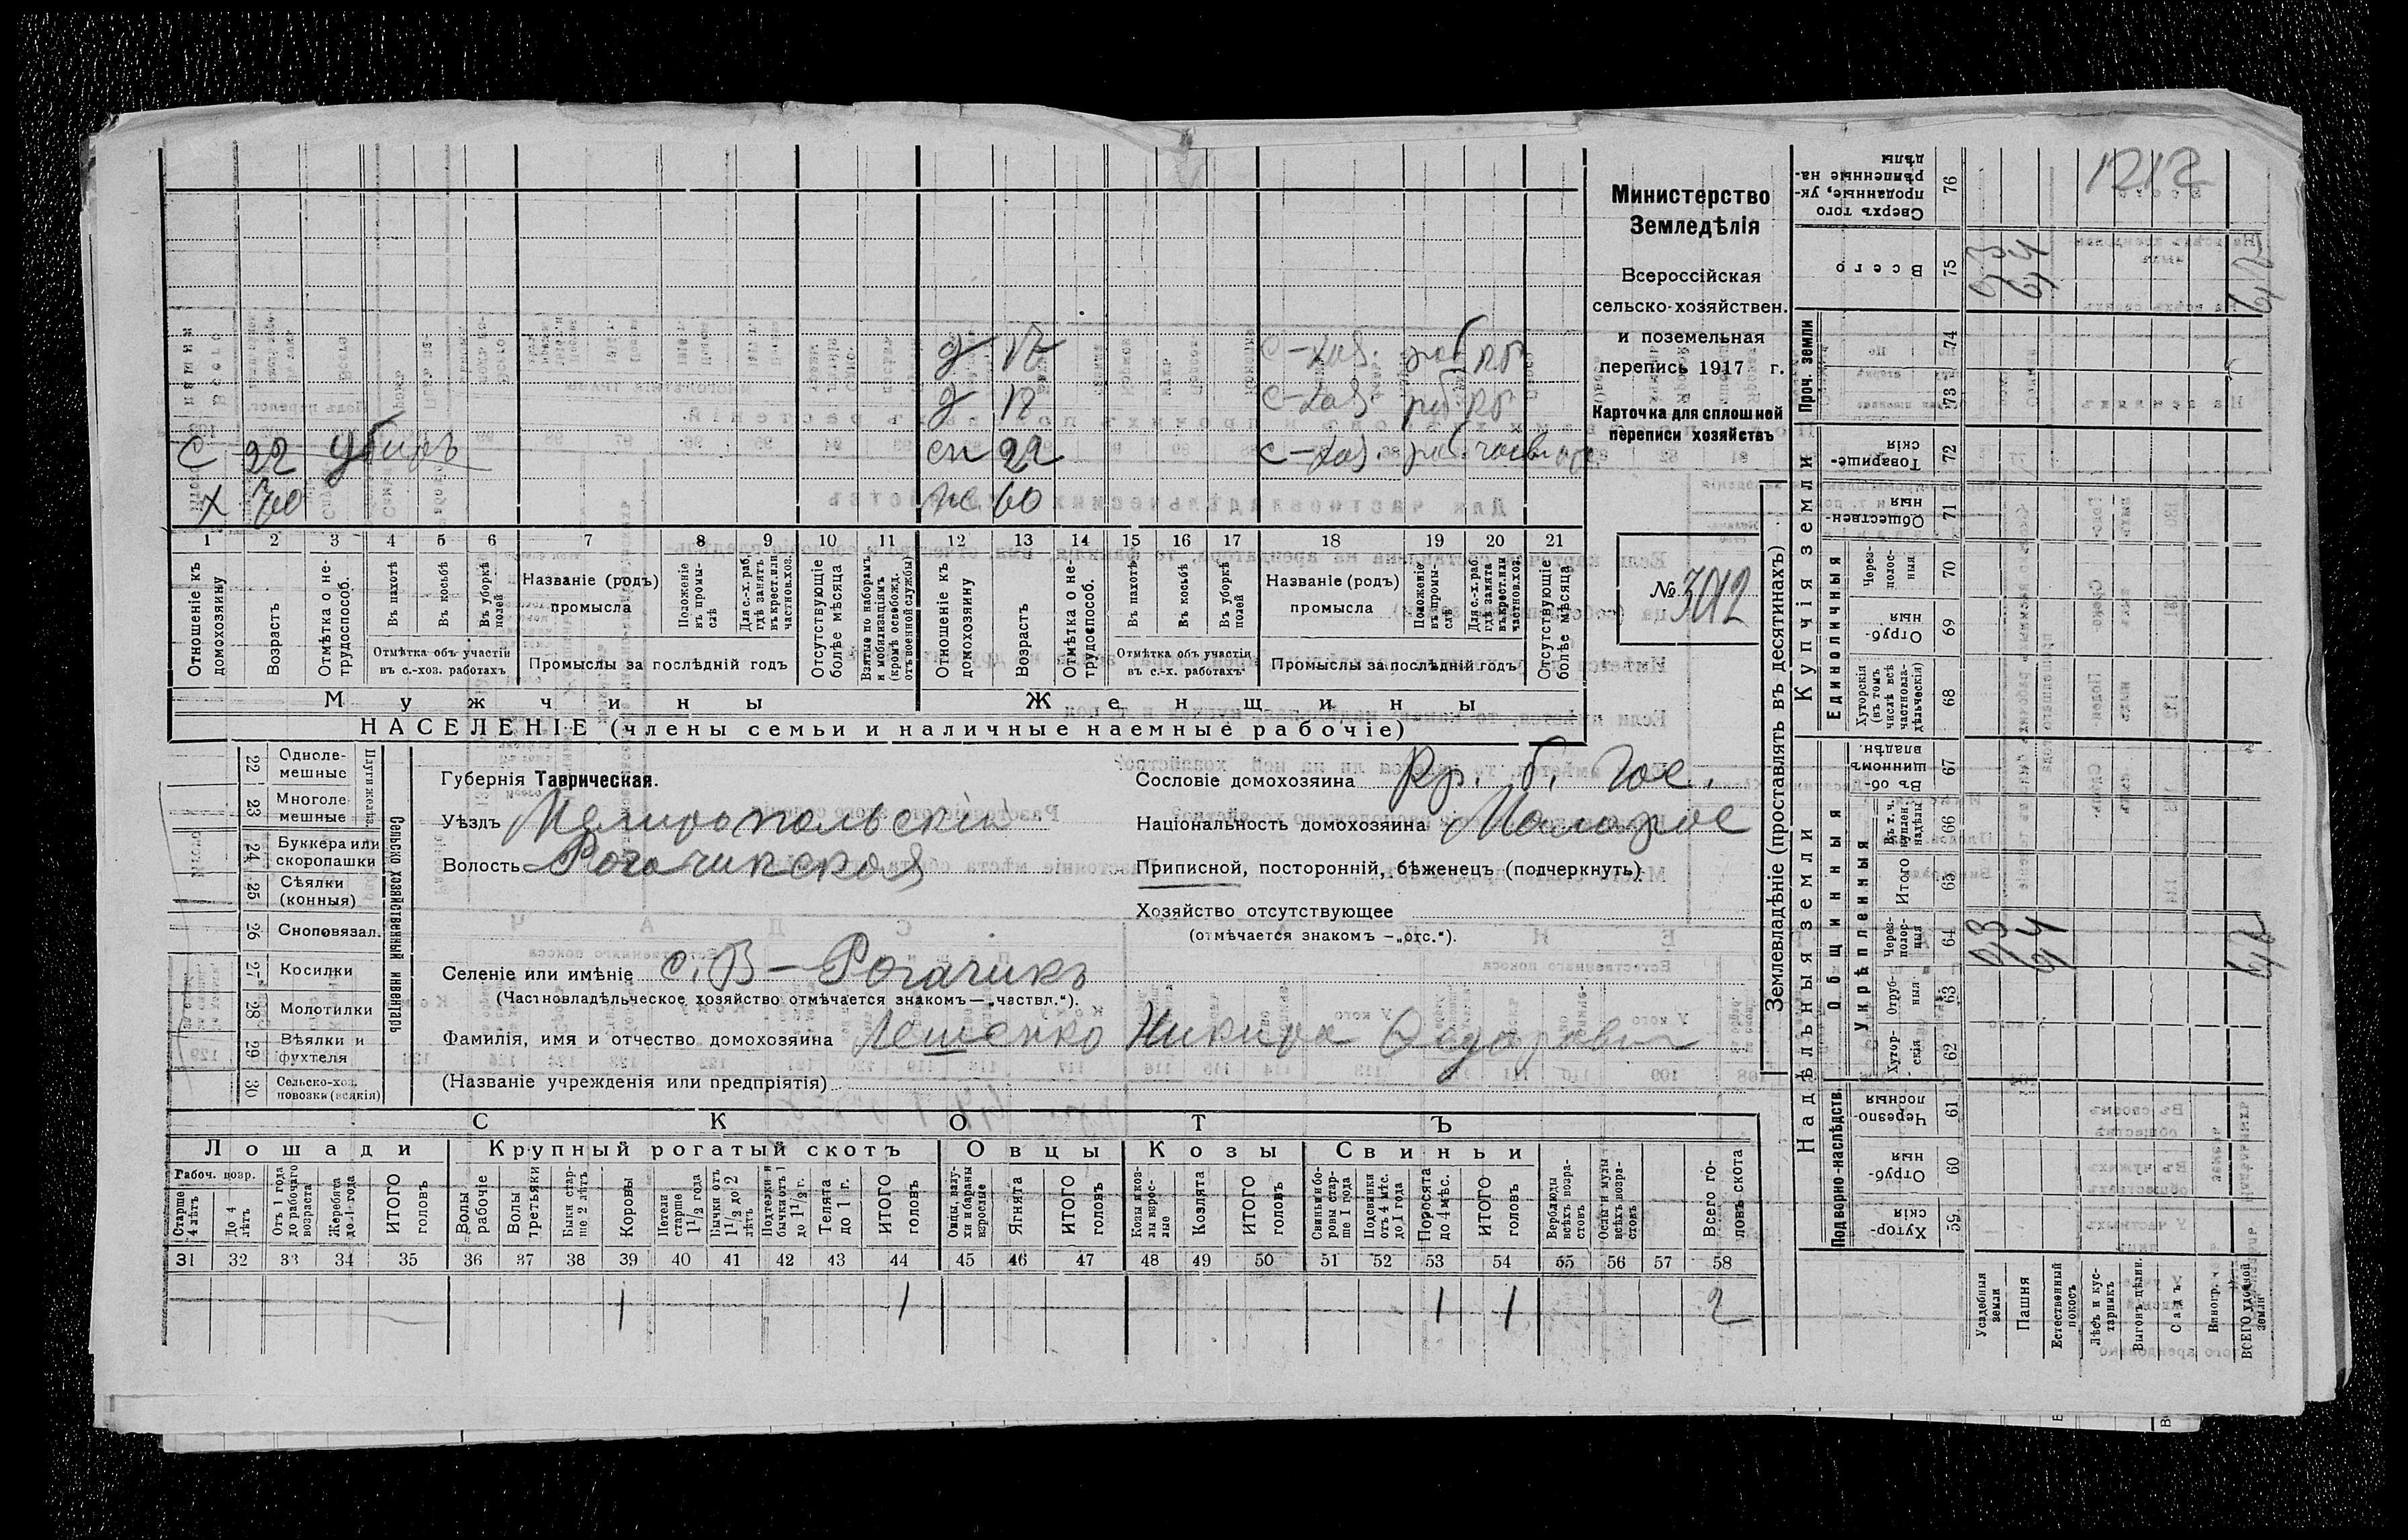 Министерство
Земледѣлія
Всероссійская
сельско-хозяйствен.
и поземельная
перепись 1917 г.
Карточка для сплошной
переписи хозяйствъ
№ 3012
1212
д 17 с-хоз. раб
д 12 с-хоз. раб
с 22 убитъ сн 22 с-хоз. раб
х 70 ж 60
1 2 3 4 5 6 7 8 9 10 11 12 13 14 15 16 17 18 19 20 21
Отношеніе къ домохозяину
Возрастъ
Отмѣтка о не-трудоспособ.
Въ пахотѣ
Въ косьбѣ
Въ уборкѣ полей
Отмѣтка объ участіи въ с.-хоз. работахъ
Названіе (родъ) промысла
Положеніе въ промы-слѣ
Для с.-х. раб. гдѣ занятъ въ крест. или частнов. хоз.
Промыслы за послѣдній годъ
Отсутствующіе болѣе мѣсяца
Взятые по наборамъ и мобилизаціямъ (кромѣ освобожд. отъ военной службы)
Отношеніе къ домохозяину
Возрастъ
Отмѣтка о не-трудоспособ.
Въ пахотѣ
Въ косьбѣ
Въ уборкѣ полей
Отмѣтка объ участіи въ с.-х. работахъ
Названіе (родъ) промысла
Положеніе въ промы-слѣ
Для с.-х. раб. гдѣ занята въ крест. или частнов. хоз.
Промыслы за послѣдній годъ
Отсутствующіе болѣе мѣсяца
Мужчины Женщины
НАСЕЛЕНІЕ (члены семьи и наличные наемные рабочіе)
Сельско хозяйственный инвентарь
Плуги желѣз.
22 Одноле-мешные
23 Многоле-мешные
24 Буккера или скоропашки
25 Сѣялки (конныя)
26 Сноповязал.
27 Косилки
28 Молотилки
29 Вѣялки и фухтеля
30 Сельско-хоз. повозки (всякія)
Губернія Таврическая.
Уѣздъ Мелитопольскій
Волость Рогачикская
Селеніе или имѣніе с. В-Рогачикъ
(Частновладѣльческое хозяйство отмѣчается знакомъ—„частвл.“).
Фамилія, имя и отчество домохозяина Лещенко Никита Федорович
(Названіе учрежденія или предпріятія)
Сословіе домохозяина Кр. б. гос.
Національность домохозяина Малорос
Приписной, посторонній, бѣженецъ (подчеркнуть)
Хозяйство отсутствующее
(отмѣчается знакомъ —„отс.“).
СКОТЪ
Лошади Крупный рогатый скотъ Овцы Козы Свиньи
Рабоч. возр.
Старше 4 лѣтъ
До 4 лѣтъ
Отъ 1 года до рабочаго возраста
Жеребята до 1 года
ИТОГО головъ
Волы рабочіе
Волы третьяки
Быки стар-ше 2 лѣтъ
Коровы
Нетели старше 1 1/2 года
Бычки отъ 1 1/2 до 2 лѣтъ
Подтелки и бычки отъ 1 до 1 1/2 г.
Телята до 1 г.
ИТОГО головъ
Овцы, валу-хи и бараны взрослые
Ягнята
ИТОГО головъ
Козы и коз-лы взрос-лые
Козлята
ИТОГО головъ
Свиньи и бо-ровы стар-ше 1 года
Подсвинки отъ 4 мѣс. до 1 года
Поросята до 4 мѣс.
ИТОГО головъ
Верблюды всѣхъ возра-стовъ
Ослы и мулы всѣхъ возра-стовъ
Всего го-ловъ скота
31 32 33 34 35 36 37 38 39 40 41 42 43 44 45 46 47 48 49 50 51 52 53 54 55 56 57 58
1 1 1 1 2
Землевладѣніе (проставлять въ десятинахъ)
Надѣльныя земли
Купчія земли
Проч. земли
Подворно-наслѣдств.
Общинныя
Укрѣпленныя
Единоличныя
Хутор-скія 59
Отруб-ныя 60
Черезпо-лосныя 61
Хутор-скія 62
Отруб-ныя 63
Через-полос-ныя 64
Итого 65
Въ т. ч. куплен. надѣлы 66
Въ об-щинномъ владѣн. 67
Хуторскія (въ томъ числѣ всѣ частновла-дѣльческія) 68
Отруб-ныя 69
Через-полос-ныя 70
Обществен-ныя 71
Товарище-скія 72
73
74
Всего 75
Сверхъ того проданные, ук-рѣпленные на-дѣлы 76
Усадебныя земли
Пашня
Естественный покосъ
Лѣсъ и кус-тарникъ
Выгонъ цѣлин.
Садъ
Виногр.
ВСЕГО удобной земли